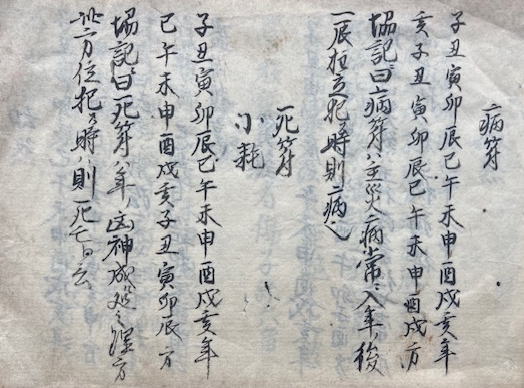 病符
子丑寅卯辰巳午未申酉戌亥年
亥子丑寅卯辰巳午未申酉戌方
協記曰病符ハ主災病常ニ入年ノ後
一辰在之犯ル時則病也
死符
小耗
子丑寅卯辰巳午未申酉戌亥年
巳午未申酉戌亥子丑寅卯辰方
協記曰死符ハ年ノ凶神成
此方位犯ル時ハ則死亡ト云